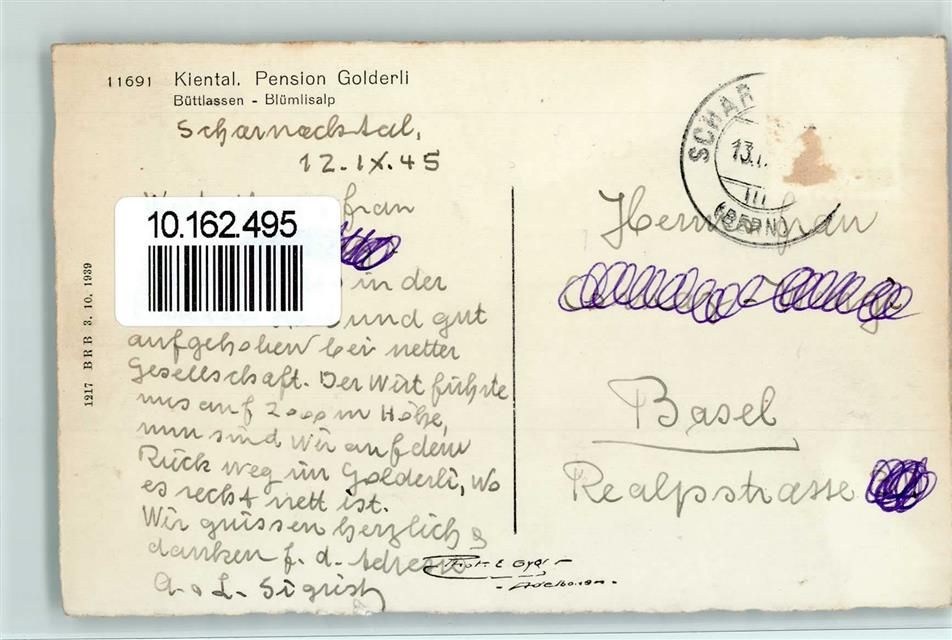 11691 Kiental. Pension Golderli
Büttlassen - Blümlisalp
Scharnachtal,
12.IX.45
frau
10.162.495
in der
und gut
aufgehoben bei netter
Gesellschaft. Der Wirt führte
uns auf 2000 m Höhe,
nun sind wir auf dem
Rück weg im Golderli, wo
es recht nett ist.
Wir grüssen herzlich &
danken f. d. Adresse
A. & L. Sigrist
1217 BRB 3. 10. 1939
SCHAR
13.
(BERN)
Herrn & frau
Basel
Realpstrasse
Phot. E. Gyger
Adelboden